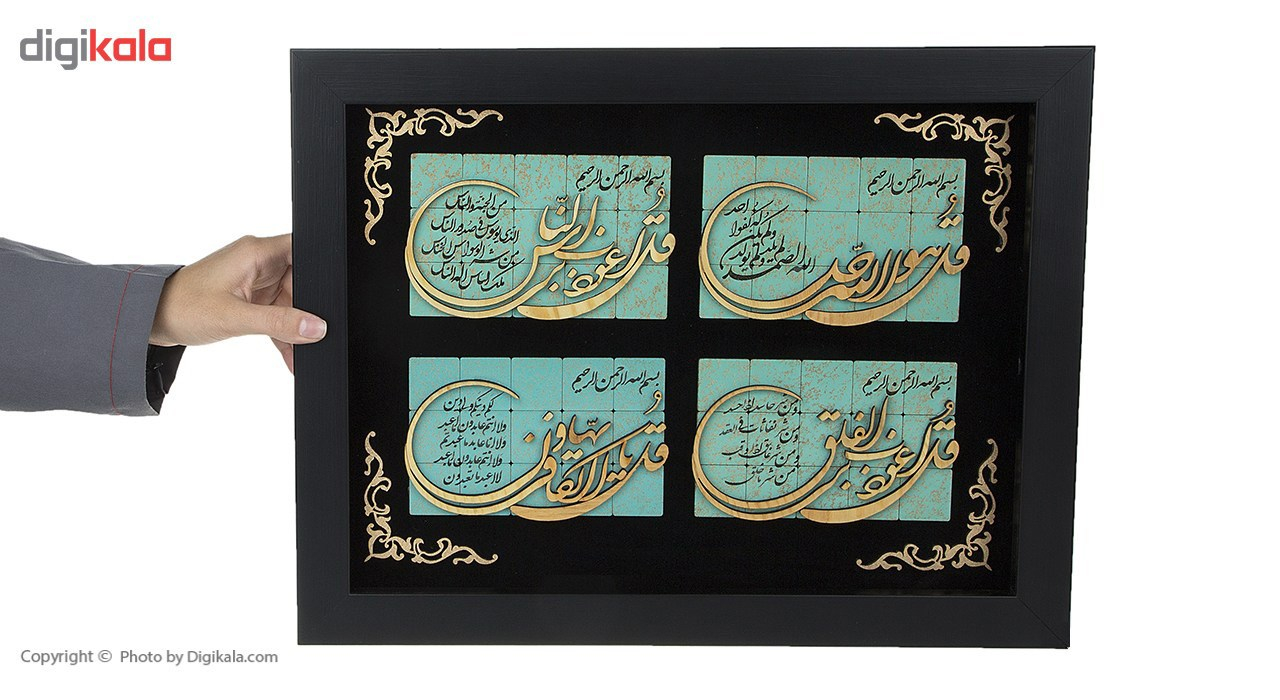 digikala
بسم الله الرحمن الرحیم
قل هو الله احد
الله الصمد
لم یلد و لم یولد
و لم یکن له
کفوا احد
بسم الله الرحمن الرحیم
قل اعوذ برب الناس
ملک الناس اله الناس
من شر الوسواس الخناس
الذی یوسوس فی صدور الناس
من الجنة و الناس
بسم الله الرحمن الرحیم
قل اعوذ برب الفلق
من شر ما خلق
و من شر غاسق اذا وقب
و من شر نفاثات فی العقد
و من شر حاسد اذا حسد
بسم الله الرحمن الرحیم
قل یا ایها الکافرون
لا اعبد ما تعبدون
ولا انتم عابدون ما اعبد
ولا انا عابد ما عبدتم
ولا انتم عابدون ما اعبد
لکم دینکم ولی دین
Copyright © Photo by Digikala.com